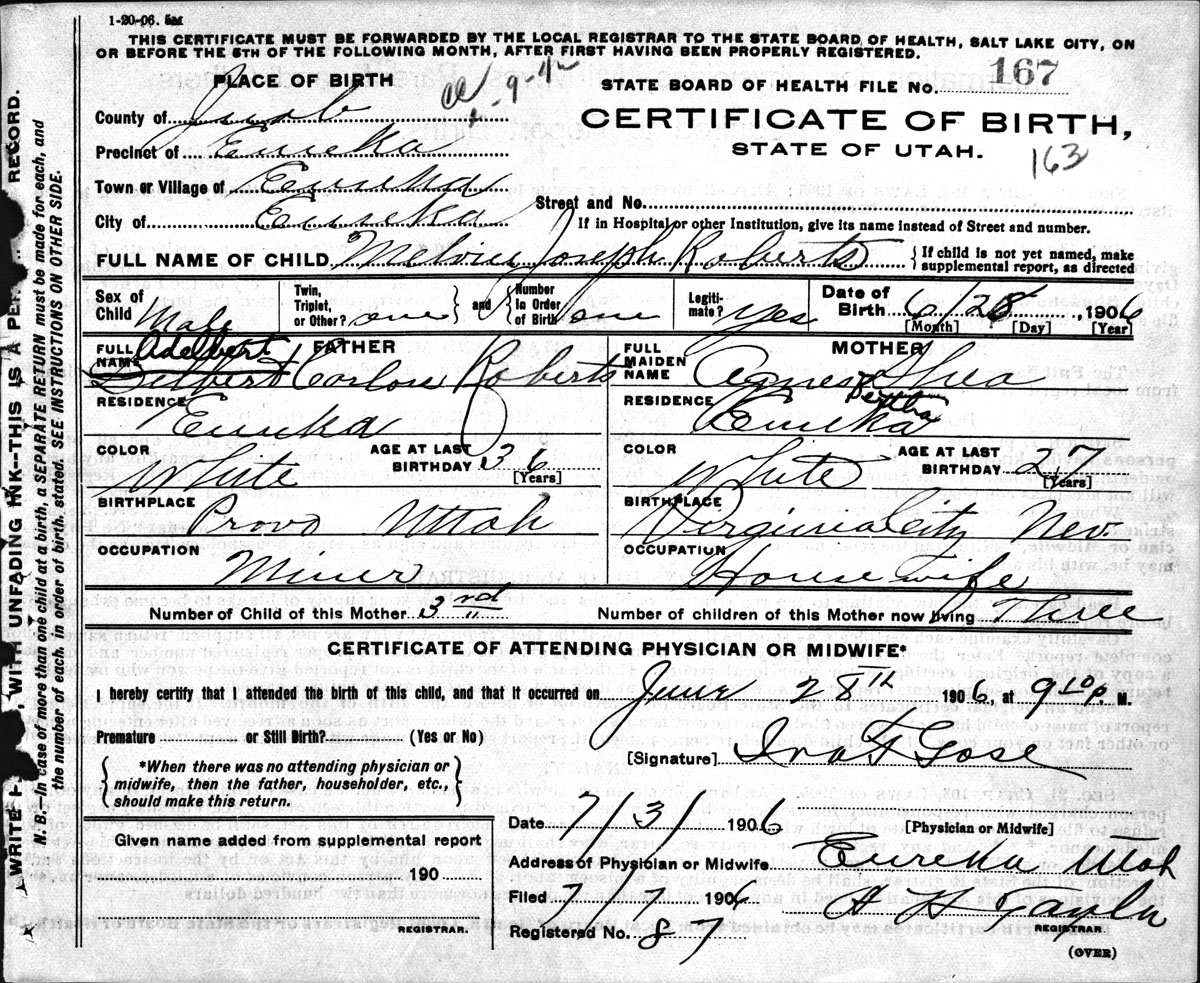 1-20-06. 5M
THIS CERTIFICATE MUST BE FORWARDED BY THE LOCAL REGISTRAR TO THE STATE BOARD OF HEALTH, SALT LAKE CITY, ON
OR BEFORE THE 5TH OF THE FOLLOWING MONTH, AFTER FIRST HAVING BEEN PROPERLY REGISTERED.
PLACE OF BIRTH
STATE BOARD OF HEALTH FILE No. 167
County of Juab
CERTIFICATE OF BIRTH,
Precinct of Eureka
STATE OF UTAH.
163
Town or Village of Eureka
Street and No.
City of Eureka
If in Hospital or other Institution, give its name instead of Street and number.
FULL NAME OF CHILD Melvin Joseph Roberts { If child is not yet named, make supplemental report, as directed
Sex of Child Male
Twin, Triplet, or Other? one } and { Number In Order of Birth one
Legitimate? Yes
Date of Birth 6/28, 1906
[Month] [Day] [Year]
FULL NAME FATHER
Adelbert
Delbert Carlow Roberts
RESIDENCE
Eureka
COLOR
White
AGE AT LAST BIRTHDAY 36
[Years]
BIRTHPLACE
Provo Uttah
OCCUPATION
Miner
FULL MAIDEN NAME MOTHER
Agnes Shea
Bertha
RESIDENCE
Eureka
COLOR
White
AGE AT LAST BIRTHDAY 27
[Years]
BIRTHPLACE
Virginia City Nev.
OCCUPATION
House wife
Number of Child of this Mother 3rd
Number of children of this Mother now living Three
CERTIFICATE OF ATTENDING PHYSICIAN OR MIDWIFE*
I hereby certify that I attended the birth of this child, and that it occurred on June 28TH 1906, at 9 10 P. M.
Premature or Still Birth? (Yes or No)
[Signature]
{ *When there was no attending physician or
midwife, then the father, householder, etc.,
should make this return. }
Date 7/3/ 1906
[Physician or Midwife]
Given name added from supplemental report
190
REGISTRAR.
Address of Physician or Midwife Eureka Utah
Filed 7/7 1906
REGISTRAR.
Registered No. 87
(OVER)
WITH UNFADING INK--THIS IS A RECORD.
N. B.--In case of more than one child at a birth, a SEPARATE RETURN must be made for each, and
the number of each, in order of birth, stated. SEE INSTRUCTIONS ON OTHER SIDE.